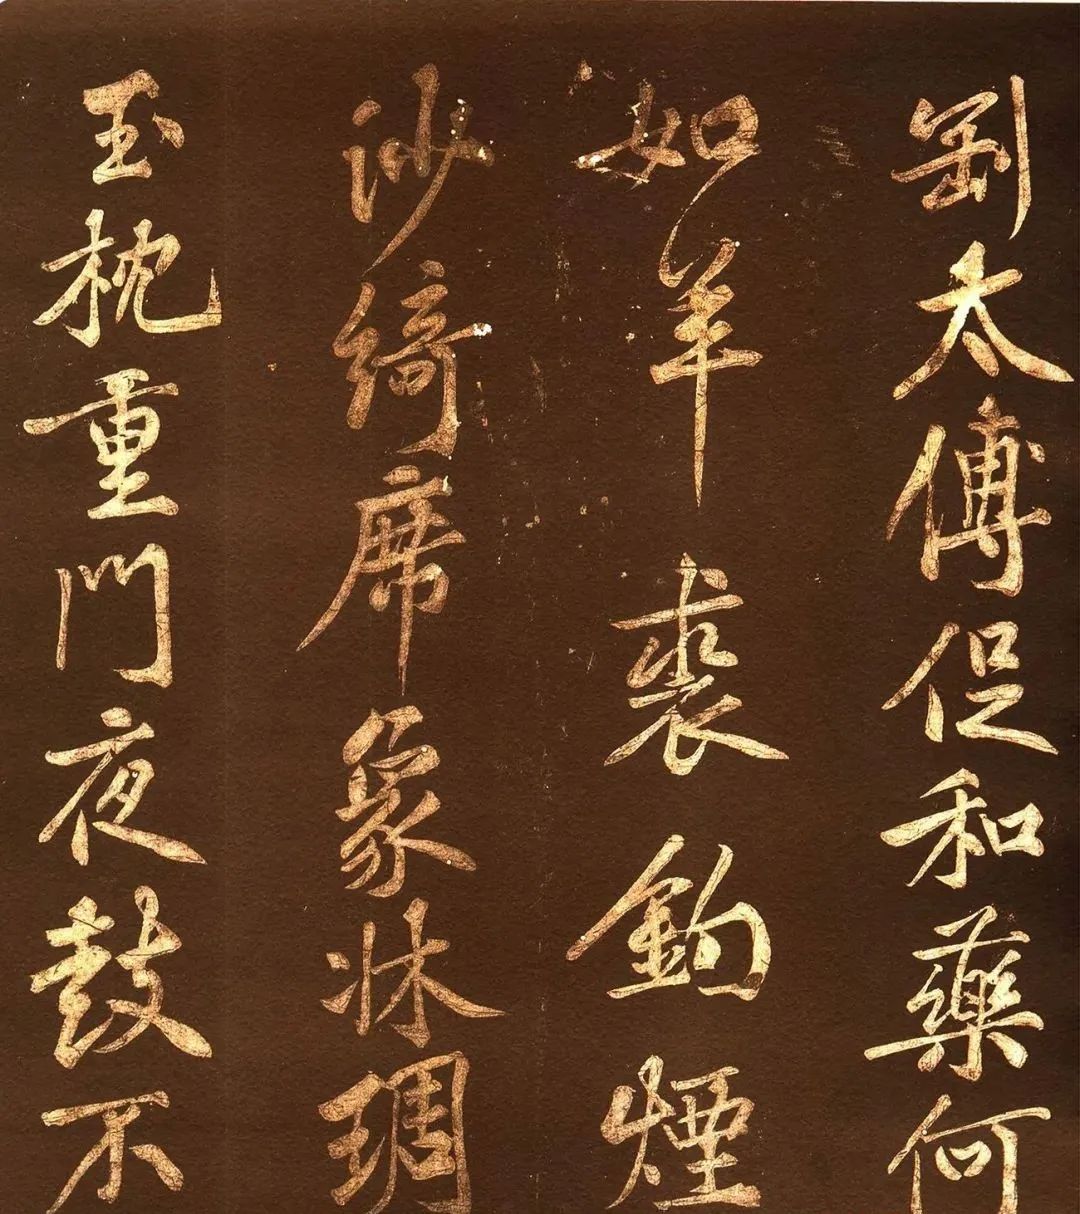 劉太傅促和藥何
如羊裘釣煙
沙綺席象牀琱
玉枕重門夜鼓不